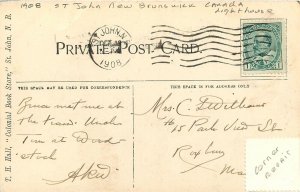 1908 ST John New Brunswick Canada
Lighthouse
PRIVATE POST CARD.
ST. JOHN, N.B.
1908
THIS SPACE MAY BE USED FOR CORRESPONDENCE
THIS SPACE IS FOR ADDRESS ONLY
E. H. Hall, "Colonial Book Store," St. John, N. B.
met me at
the train. Uncle
Tim at Wood-
stock
Mrs. C. F. Williams
#15 Park View St
Roxbury
Mass
corner